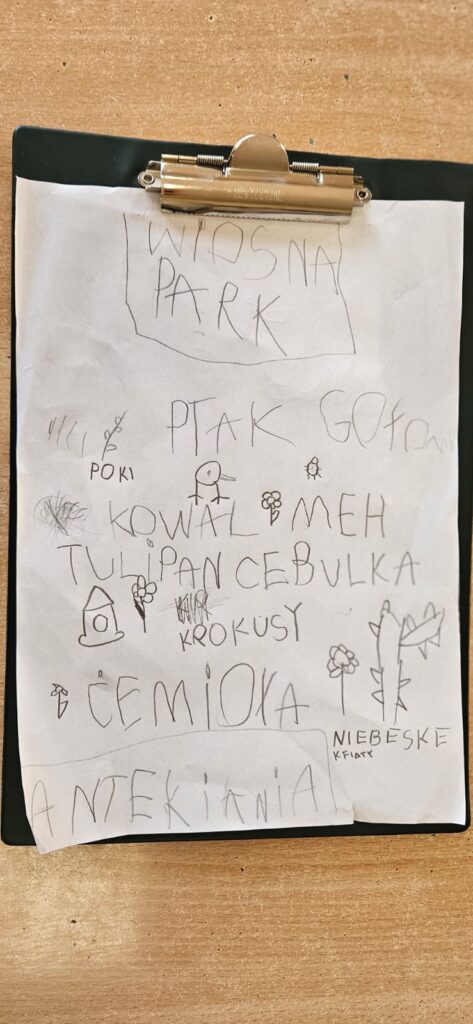 WIOSNA
PARK
PTAK GOŁOMP
POKI
KOWAL MEH
TULIPAN CEBULKA
KROKUSY
ĆEMIOŁA
NIEBESKE
KFIATY
ANTEK i ANIA